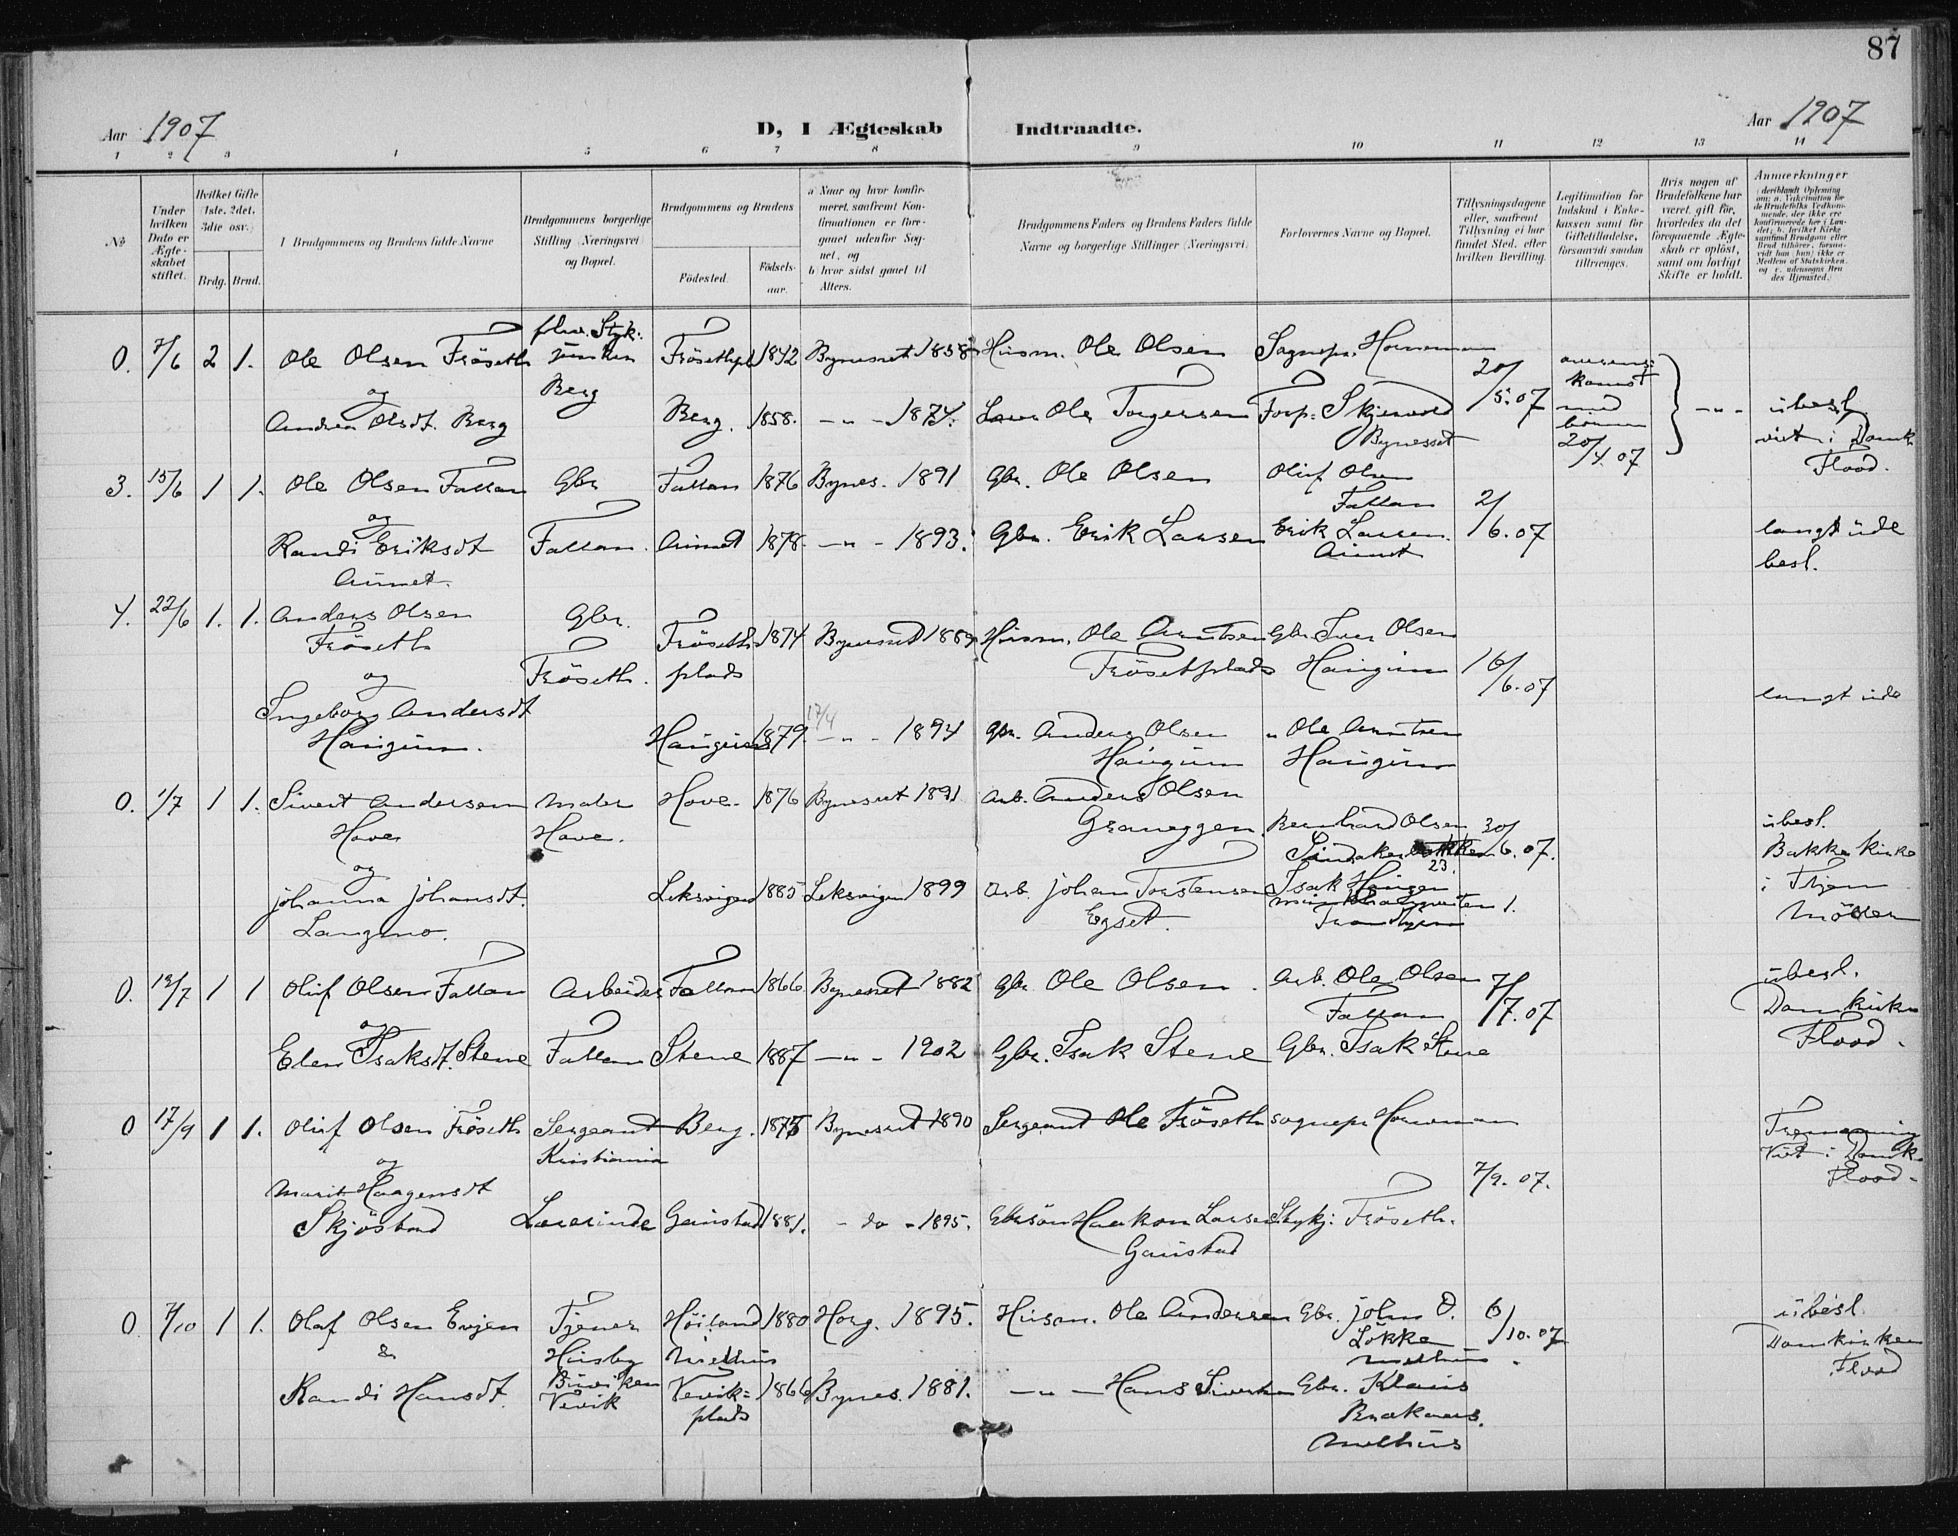 87
Aar 1907
D, I Ægteskab Indtraadte.
Aar 1907
1 2 3 4 5 6 7 8 9 10 11 12 13 14
No
Under hvilken Dato er Ægteskabet stiftet.
Hvilket Gifte (1ste, 2det, 3die osv.)
Brdg. Brud.
Brudgommens og Brudens fulde Navne
Brudgommens borgerlige Stilling (Næringsvei) og Bopæl.
Brudgommens og Brudens
Fødested.
Fødselsaar.
a Naar og hvor konfirmeret, samt om Konfirmationen er foregaaet udenfor Sognet, og
b hvor sidst gaaet til Alters.
Brudgommens Faders og Brudens Faders fulde Navne og borgerlige Stillinger (Næringsvei)
Forlovernes Navne og Bopæl.
Tillysningsdagene eller, saafremt Tillysning ei har fundet Sted, efter hvilken Bevilling.
Legitimation for Indskud i Enkekassen samt for Giftetilladelse, forsaavidt saadan tiltrænges.
Hvis nogen af Brudefolkene har været gift før, hvorledes da det foregaaende Ægteskab er opløst, samt om lovligt Skifte er holdt.
Anmerkninger
0. 7/6 2 1. Ole Olsen Fröseth Frösethpl 1842 Bynesset 1858 Husm. Ole Olsen Sognepr. Horneman 20/5.07
og Berg
Andrea Olsdt. Berg Berg. 1858. -"- 1874. Ole Torgersen Forp. Skjervold
Bynesset
med
20/4.07 -"- ubesl.
viet i Domk.
Flood.
3. 15/6 1 1. Ole Olsen Fallan Gbr Fallan 1876 Bynes. 1891 Gbr. Ole Olsen Oluf Olsen
Fallan 2/6.07
og
Randi Eriksdt Fallan. Aunet 1878. -"- 1893. Gbr. Erik Larsen Erik Larsen langt ude
Aunet. Aunet besl.
4. 22/6 1. 1. Anders Olsen Gbr. Fröseth 1874 Bynesset 1889 Husm. Ole Arntsen Gbr. Iver Olsen
Fröseth Fröseth. plads Frösetplads Haugum 16/6.07
og langt ude
Ingeborg Andersdt 17/4
Haugum. Haugum 1879. -"- 1894 Gbr. Anders Olsen " Ole Arntsen
Haugum Haugum
0. 1/7 1 1. Sivert Andersen Maler Hove. 1876 Bynesset 1891 Arb. Anders Olsen
Hove Hove. Graneggen. Bernhard Olsen 30/6.07. ubesl.
23. Bakke kirke
og i Thjem
Johanna Johansdt. Leksvigen 1885 Leksvigen 1899 Arb. Johan Torstensen Isak Haugen
Langmo. Egset. Trondhjem Möller
0. 12/7 1 1 Oluf Olsen Fallan Arbeider Fallan 1866 Bynesset 1882 Gbr. Ole Olsen. Arb. Ole Olsen 7/7.07 ubesl.
og Fallan Domkirken
Elen Isaksdt. Stene Fallan Stene 1887 -"- 1902 Gbr. Isak Stene Gbr. Isak Stene Flood.
0 17/9 1 1. Oluf Olsen Fröseth Sergeant Berg. 1875 Bynesset 1890 Sergeant Ole Fröseth sognepr. Horneman Tremenning
og Kristiania Viet i Domk.
Marit Haagensdt 7/9.07. Flood.
Skjöstad Lærerinde Gaustad 1881. - do - 1895. Gbrsön Haakon Larsen Stykj. Fröseth.
Gaustad
0 7/10 1 1. Olaf Olsen Evjen Tjener Höiland 1880 Horg. 1895. Husm. Ole Andersen Gbr. John O. 6/10.07 ubesl.
& Husby i Melhus Lökke Domkirken
Buviken Melhus. Flood
Randi Hansdt. Vevik Vevik= 1866 Bynes. 1881. -"- Hans Sivertsen Gbr. Klaus
plads
Melhus